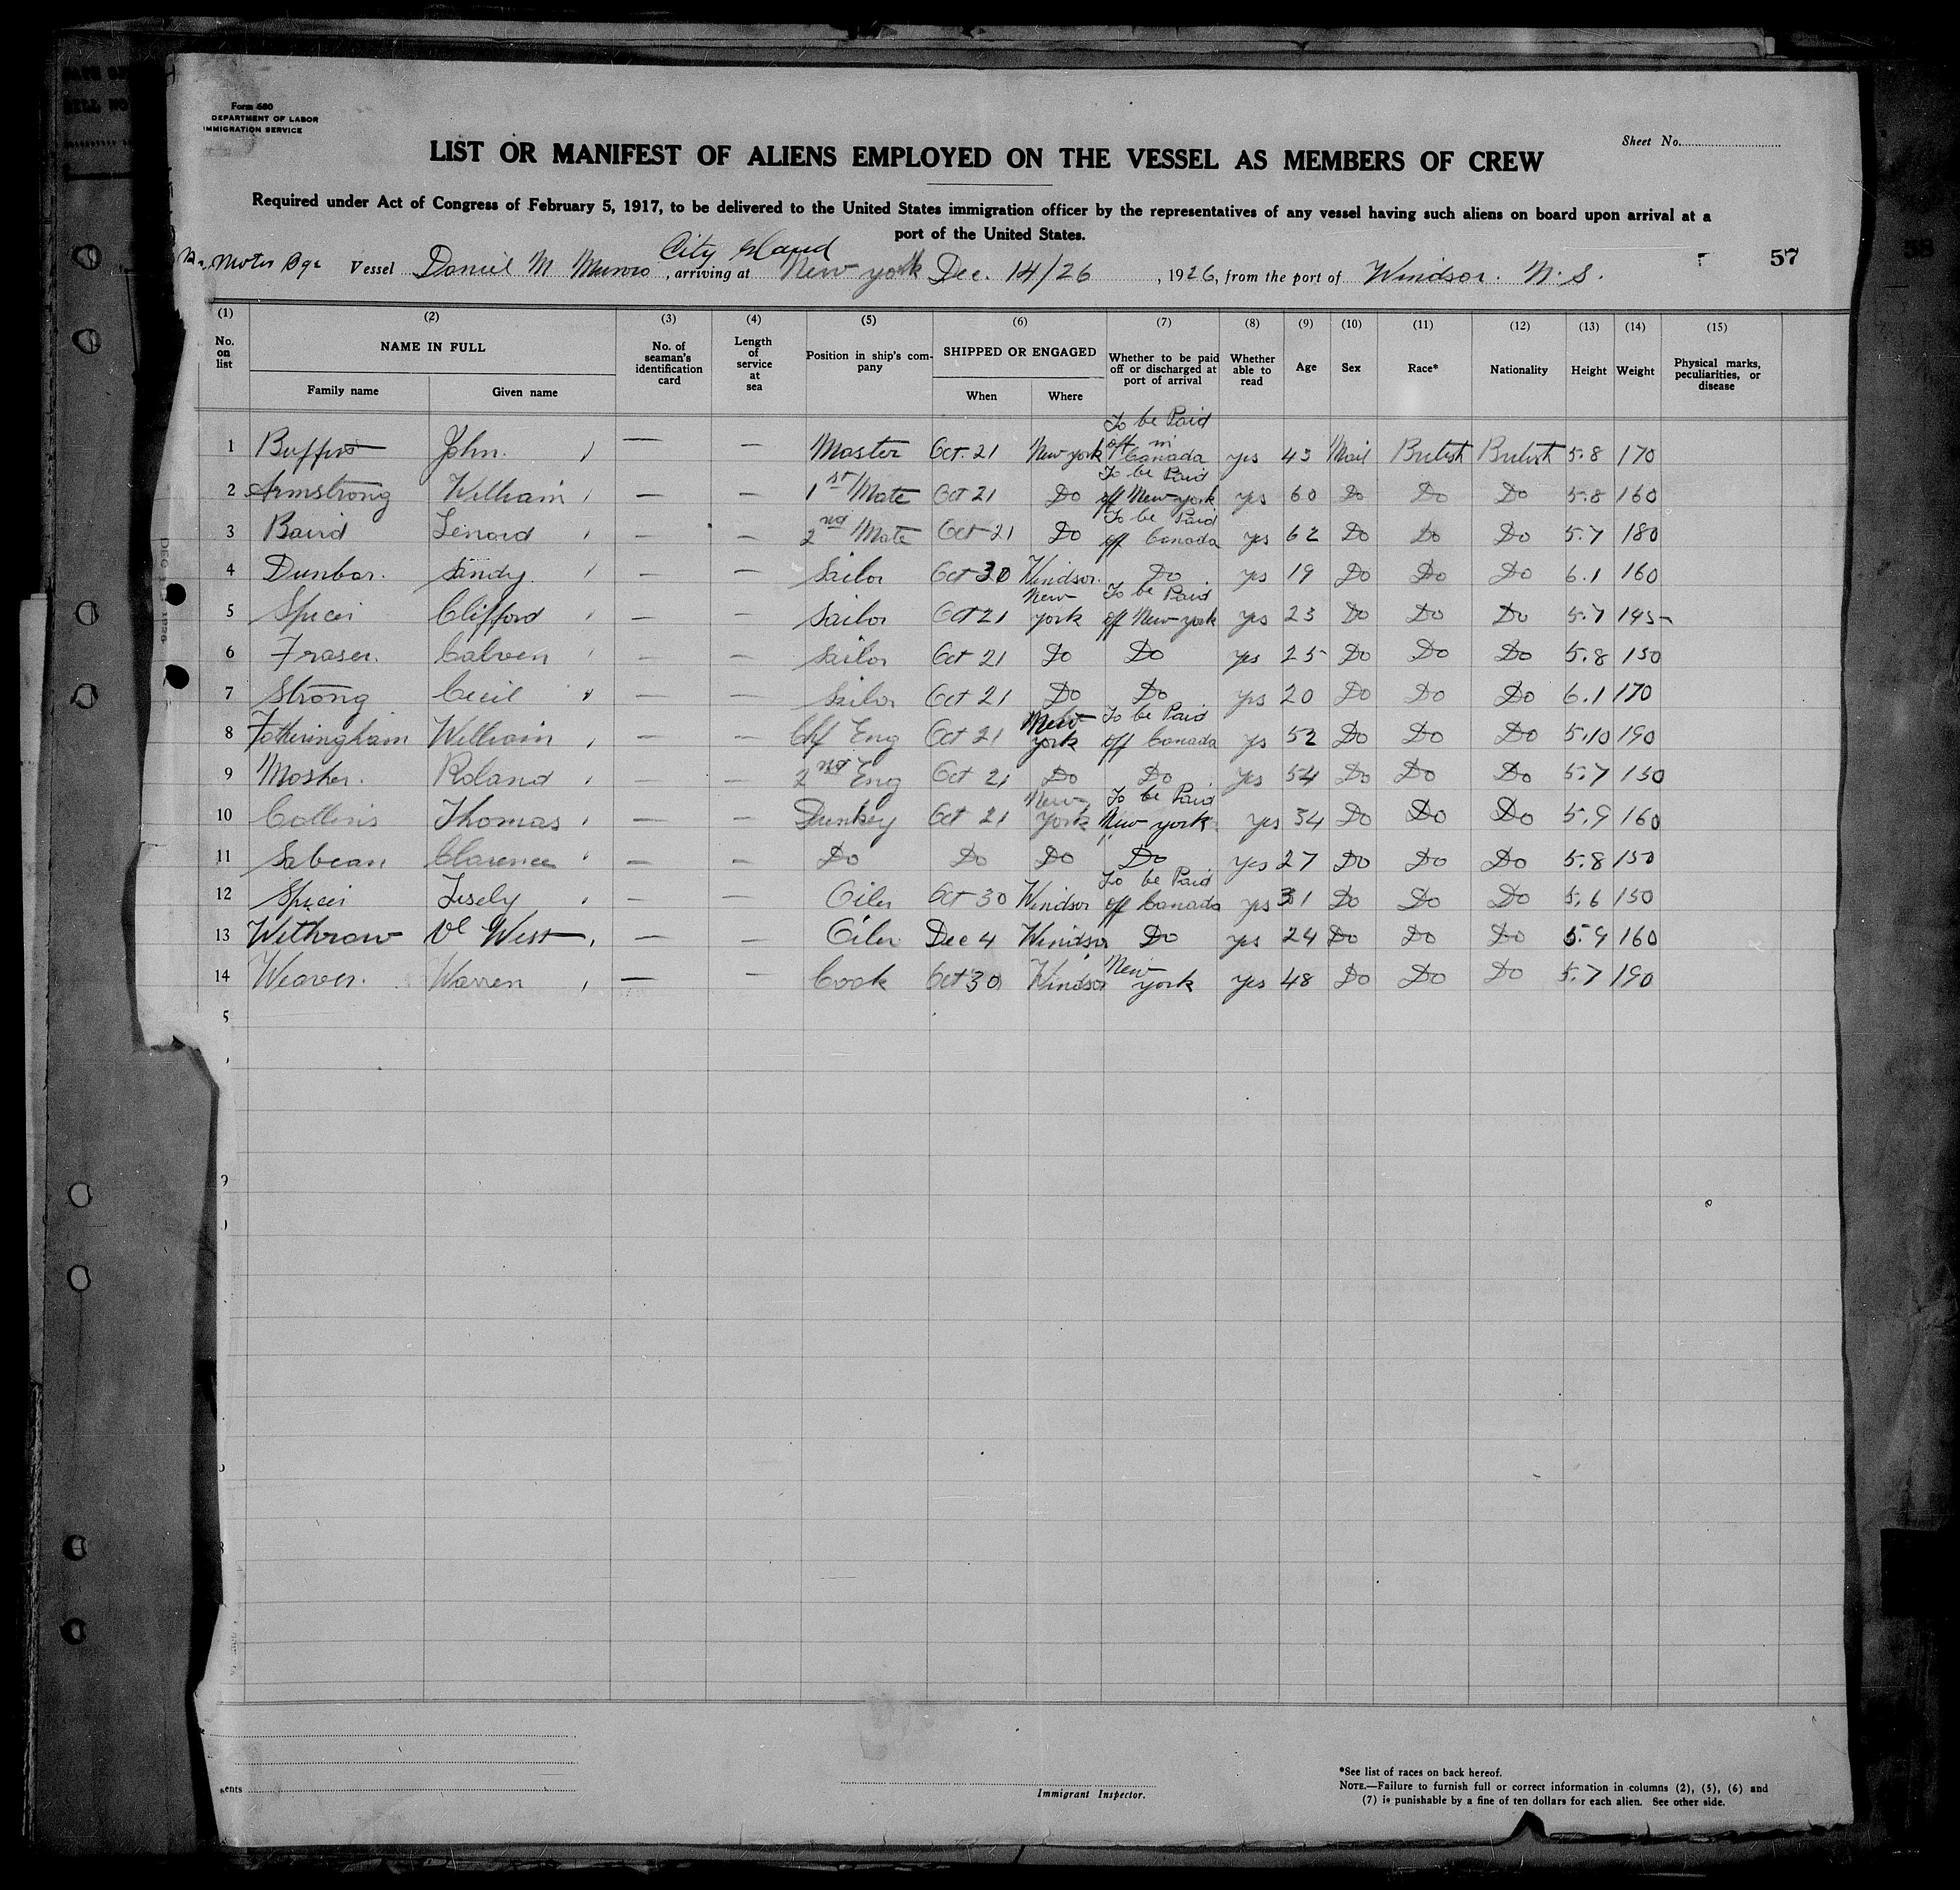 Form 680
DEPARTMENT OF LABOR
IMMIGRATION SERVICE
Sheet No.
LIST OR MANIFEST OF ALIENS EMPLOYED ON THE VESSEL AS MEMBERS OF CREW
Required under Act of Congress of February 5, 1917, to be delivered to the United States immigration officer by the representatives of any vessel having such aliens on board upon arrival at a
port of the United States.
City Island
Motor Bge Vessel Daniel M Munro, arriving at New york Dec. 14/26, 1926, from the port of Windsor. N. S.
57
(1) (2) (3) (4) (5) (6) (7) (8) (9) (10) (11) (12) (13) (14) (15)
No. on list NAME IN FULL No. of seaman's identification card Length of service at sea Position in ship's company SHIPPED OR ENGAGED Whether to be paid off or discharged at port of arrival Whether able to read Age Sex Race* Nationality Height Weight Physical marks, peculiarities, or disease
Family name Given name When Where
1 John. — — Master Oct. 21 New york To be Paid off in Canada yes 43 Mail British British 5.8 170
2 Armstrong William — — 1st Mate Oct 21 Do To be Paid off New york yes 60 Do Do Do 5.8 160
3 Baird Lenard — — 2nd Mate Oct 21 Do To be Paid off Canada yes 62 Do Do Do 5.7 180
4 Dunbar. Sandy. — — Sailor Oct 30 Windsor. Do yes 19 Do Do Do 6.1 160
5 Spicer Clifford — — Sailor Oct 21 New york To be Paid off New york yes 23 Do Do Do 5.7 145
6 Fraser. Calven — — Sailor Oct 21 Do Do yes 25 Do Do Do 5.8 150
7 Strong Cecil — — Sailor Oct 21 Do Do yes 20 Do Do Do 6.1 170
8 Fotheringham William — — Chf Eng Oct 21 New york To be Paid off Canada ys 52 Do Do Do 5.10 190
9 Mosher. Roland — — 2nd Eng Oct 21 Do Do yes 54 Do Do Do 5.7 150
10 Collins Thomas — — Dunkey Oct 21 New york To be Paid New york yes 34 Do Do Do 5.9 160
11 Sabean Clarence — — Do Do Do Do yes 27 Do Do Do 5.8 150
12 Spicer Lesely — — Oiler Oct 30 Windsor To be Paid off Canada yes 31 Do Do Do 5.6 150
13 Withrow West — — Oiler Dec 4 Windsor Do yes 24 Do Do Do 5.9 160
14 Weaver. Warren — — Cook Oct 30 Windsor New york yes 48 Do Do Do 5.7 190
5
9
Immigrant Inspector.
*See list of races on back hereof.
NOTE.—Failure to furnish full or correct information in columns (2), (5), (6) and
(7) is punishable by a fine of ten dollars for each alien. See other side.